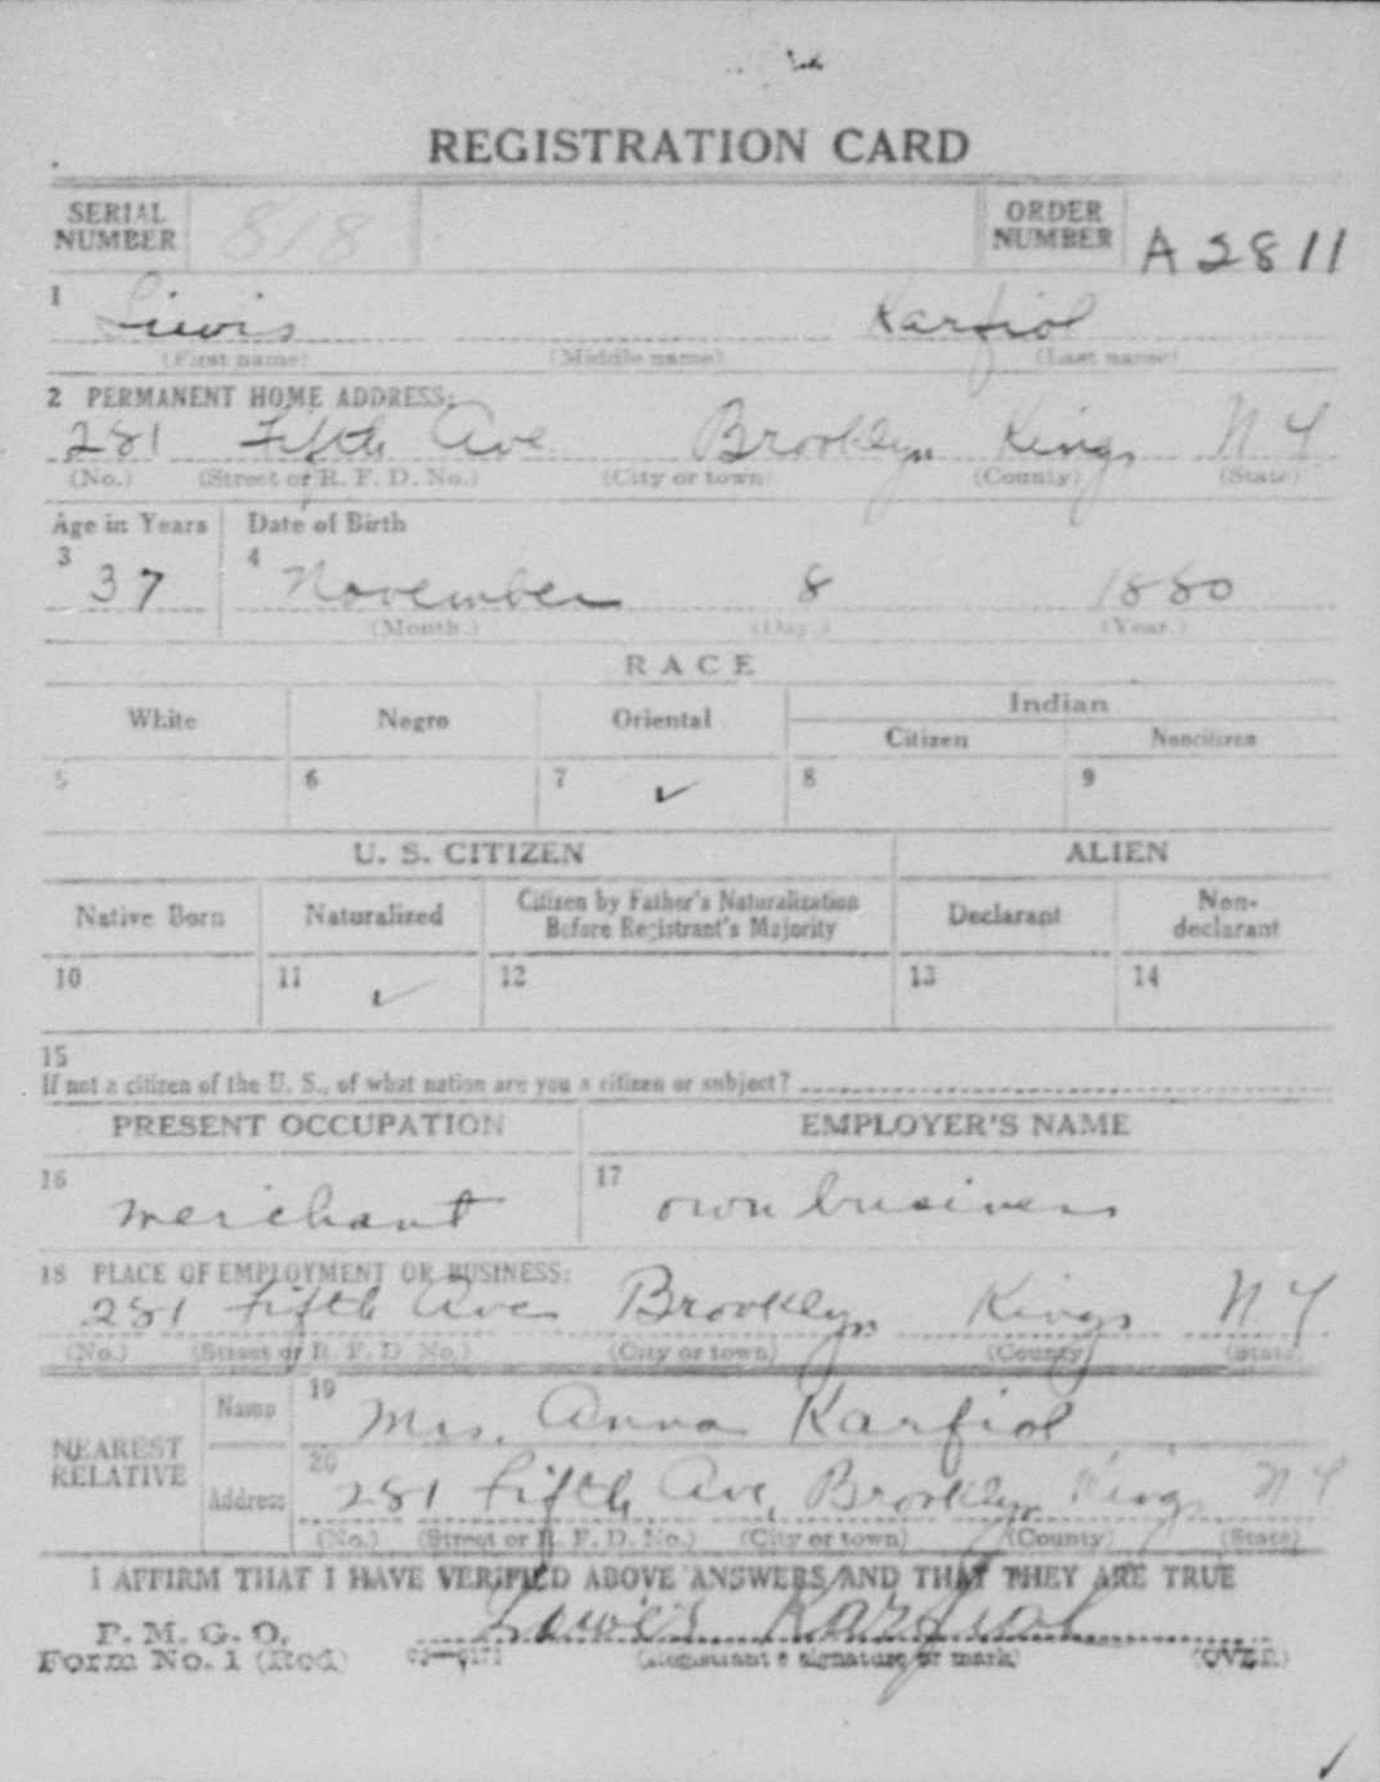 REGISTRATION CARD
SERIAL NUMBER 818 ORDER NUMBER A2811
1 Liewis Karfiol
(First name) (Middle name) (Last name)
2 PERMANENT HOME ADDRESS:
281 Fifth Ave Brooklyn Kings N Y
(No.) (Street or R. F. D. No.) (City or town) (County) (State)
Age in Years Date of Birth
3 37 4 November 8 1880
(Month.) (Day.) (Year.)
RACE
White Negro Oriental Indian
Citizen Noncitizen
5 6 7 ✓ 8 9
U. S. CITIZEN ALIEN
Native Born Naturalized Citizen by Father's Naturalization Before Registrant's Majority Declarant Non-declarant
10 11 ✓ 12 13 14
15
If not a citizen of the U. S., of what nation are you a citizen or subject?
PRESENT OCCUPATION EMPLOYER'S NAME
16 merchant 17 own business
18 PLACE OF EMPLOYMENT OR BUSINESS:
281 Fifth Ave Brooklyn Kings N Y
(No.) (Street or R. F. D. No.) (City or town) (County) (State)
NEAREST RELATIVE
Name 19 Mrs. Anna Karfiol
Address 20 281 Fifth Ave, Brooklyn Kings N Y
(No.) (Street or R. F. D. No.) (City or town) (County) (State)
I AFFIRM THAT I HAVE VERIFIED ABOVE ANSWERS AND THAT THEY ARE TRUE
P. M. G. O.
Form No. 1 (Red) 03—6171 Lowis Karfiol
(Registrant's signature or mark) (OVER)